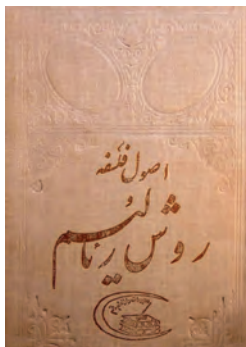 اصول فلسفه
روش رئالیسم